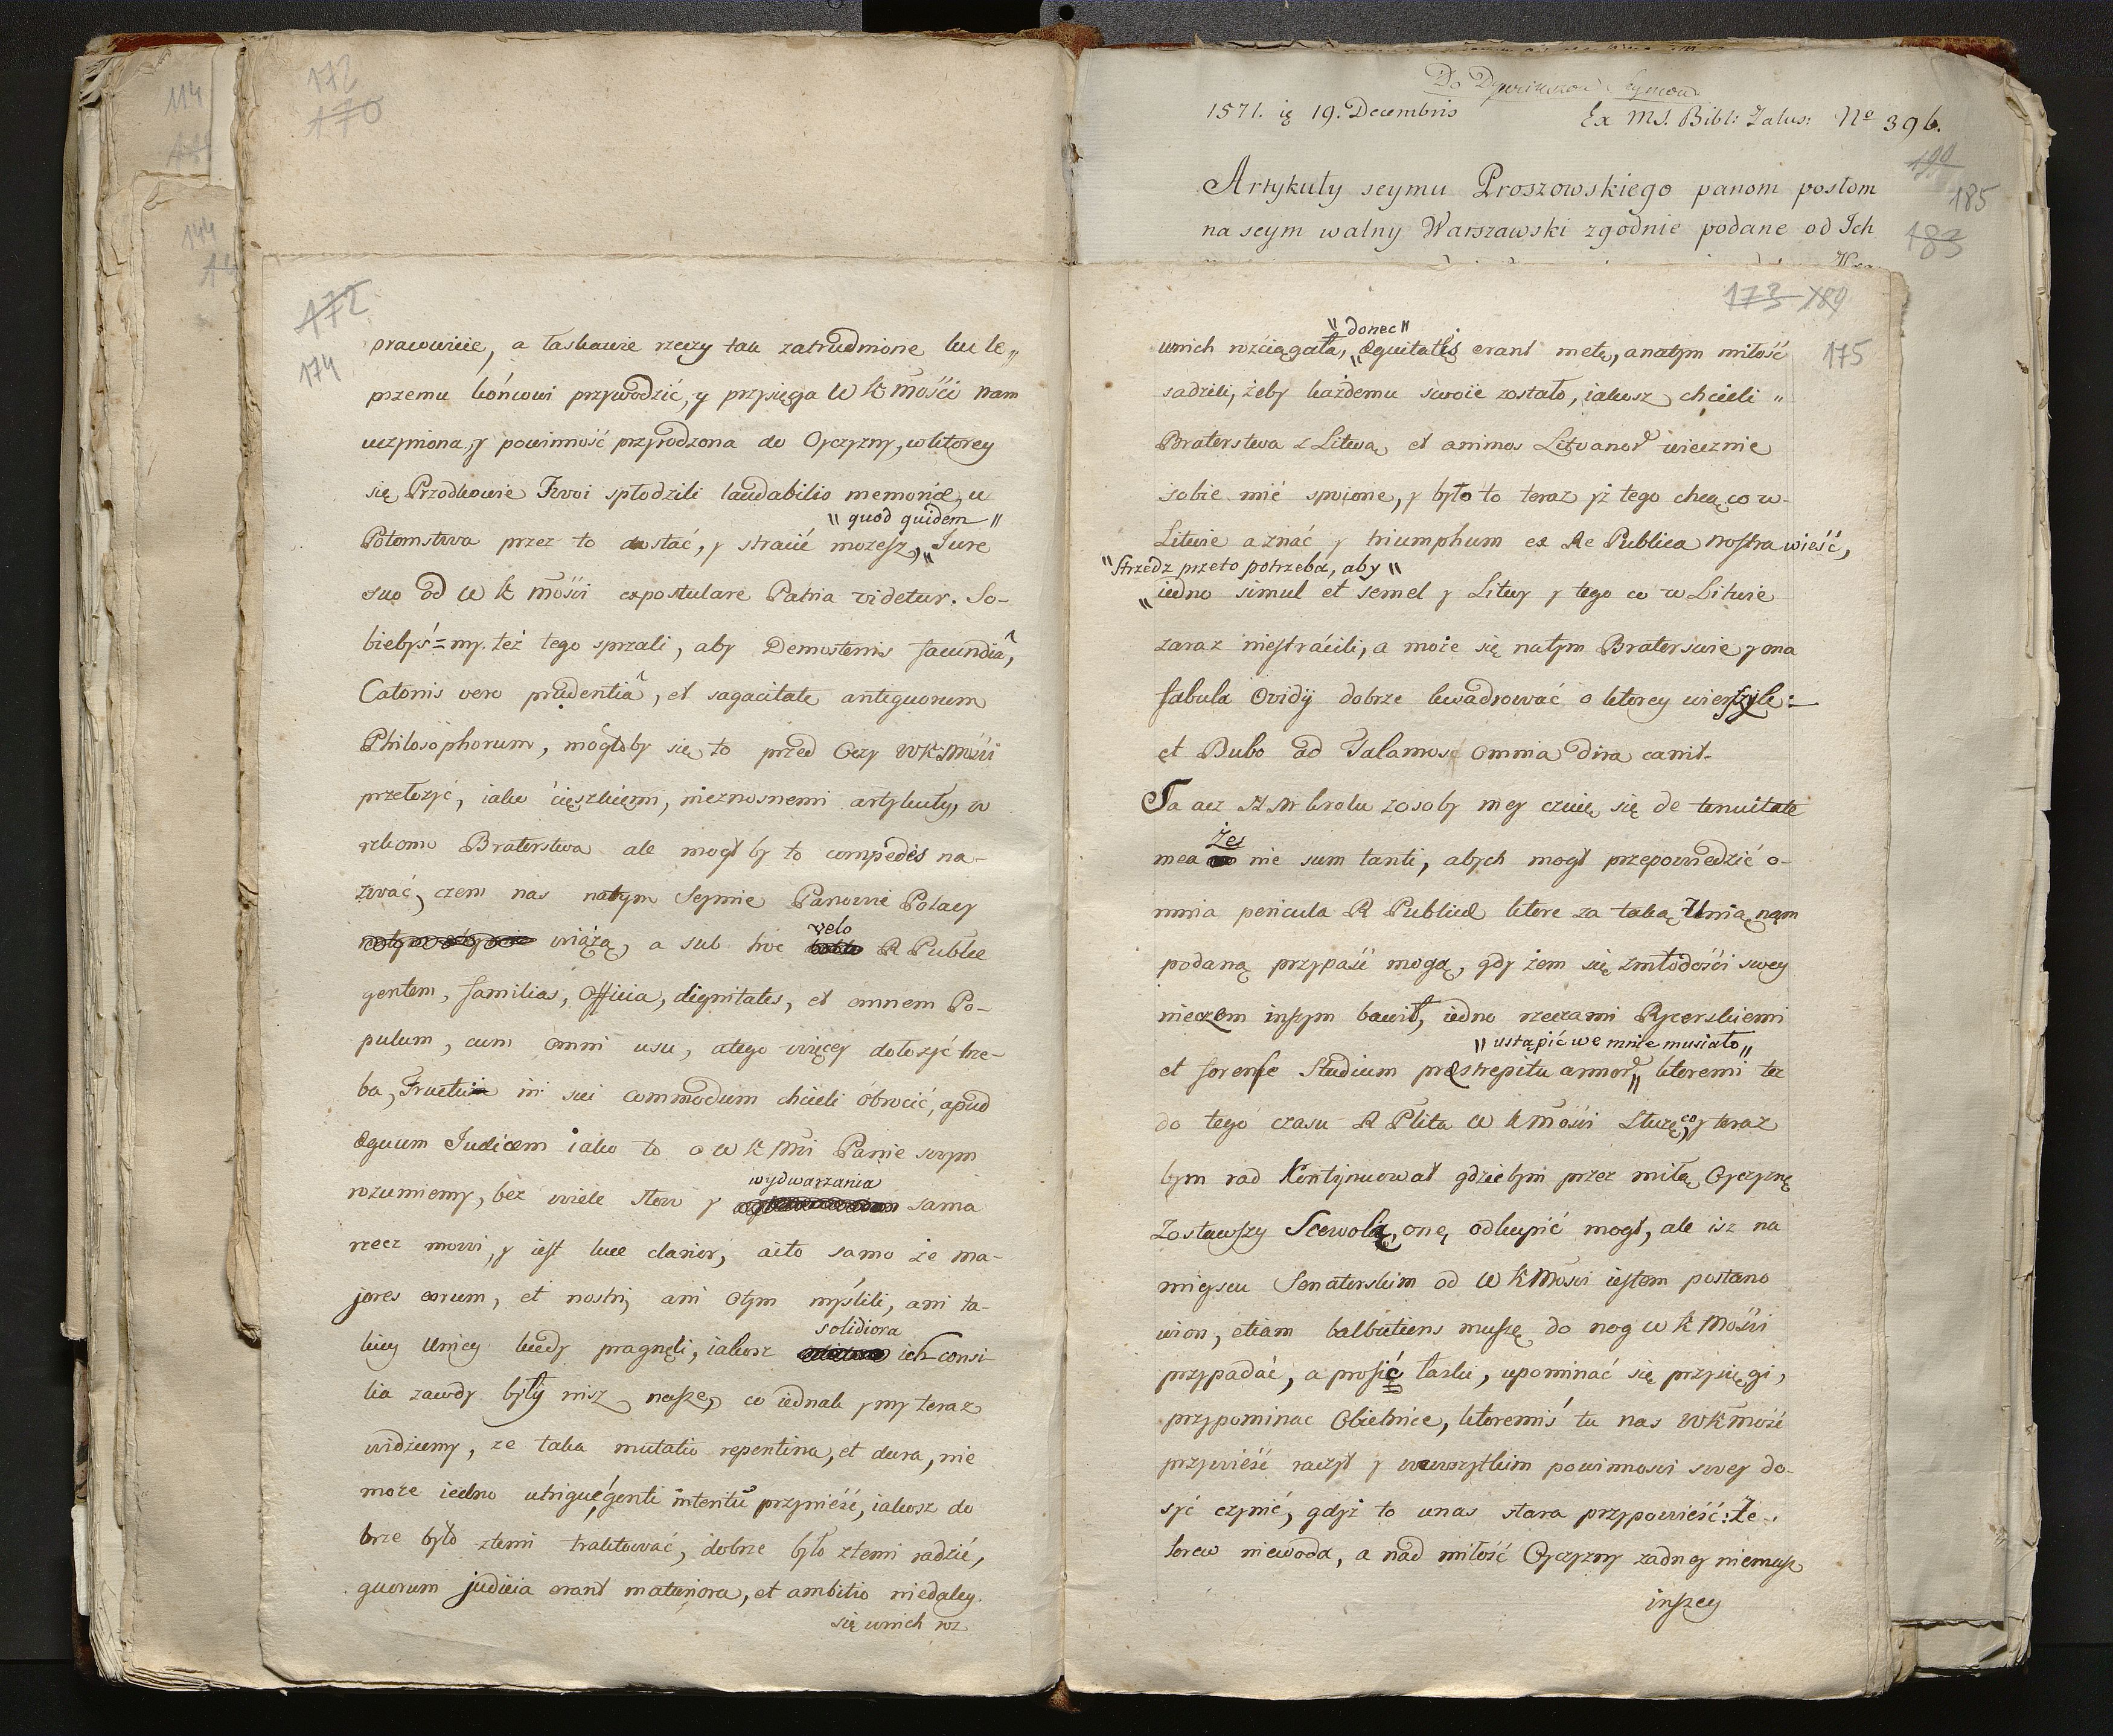 114
144
172
170
172
174
prawowicie, a łaskawie rzeczy tak zatrudnione ku le„
przemu końcowi przywodzić, y przysięga W K Mości nam
uczyniona, y powinność przyrodzona do Oyczyzny, wktorey
się Przodkowie Twoi spłodzili laudabilis memoriæ, u
"quod quidem"
Potomstwa przez to dostać, y stracić możesz, „Jure
suo od W K Mości expostulare Patria videtur. So-
biebyś=my też tego sprzali, aby Demostenis facundiâ,
Catonis vero prudentiâ, et sagacitate antiquorum
Philosophorum, mogłoby się to przed Oczy WK Mości
przełozyć, iako cięszkiemi, nieznosnemi artykuły, w
rzkomo Braterstwa ale mogł by to compedes na-
zwać, czem nas natym Seymie Panowie Polacy
wiążą, a sub hoc velo R Publcæ
gentem, familias, Officia, dignitates, et omnem Po-
pulum, cum omni usu, atego więcey dołozyć trze-
ba, Fructu in sui commodum chcieli obrocić, apud
Æquum Judicem iako to o W K Mci Panie swym
wydwarzania
rozumiemy, bez wiele słow y sama
rzecz mowi, y iest luce clarior, aito samo że ma-
jores eorum, et nostri, ani Otym myślili, ani ta-
solidiora
kiey Uniey kiedy pragnęli, iakosz ich consi
lia zawdy były nisz nasze, co iednak y my teraz
widziemy, ze taka mutatio repentina, et dura, nie
moze iedno utrique genti interitũ przynieść, iakosz do
brze było ztemi traktować, dobrze było ztemi radzić,
quorum judicia erant maturiora, et ambitio niedaley
się wnich roz
1571. ię 19. Decembris
Ex MS. Bibl: Zalus: No 396.
Artykuły seymu Proszowskiego panom posłom
na seym walny Warszawski zgodnie podane od Ich
185
183
173 189
175
"donec"
wnich rozciągała, „Æquitatis erant metę, anatym miłość
sadzili, żeby każdemu swoie zostało, iakosz chcieli „
Braterstwa z Litwą, et animos Litvanor̃ wiecznie
sobie mić spoione, y było to teraz yż tego chcą co w-
Litwie aznać y triumphum ex Re Publica nostra wieść,
"Strzedz przeto potrzeba, aby"
„iedno simul et semel y Litwy y tego co w Litwie
zaraz niestracili, a może się natym Braterswie y ona
fabula Ovidij dobrze kwadrować o ktorey wierszyk:
et Bubo ad Talamos omnia dira canit.
Ja acz N M krolu zosoby mey czuię się de tenuitate
Żes
mea nie sum tanti, abych mogł przepowiedzić o-
mnia pericula R Publicæ ktore za taką Unią nąm
podaną przypaść mogą, gdy żem się zmłodości swey
nieczem inszym bawił, iedno rzeczami Rycerskiemi
„ustąpić we mnie musiało„
et forense Studium præ strepitu armor̃„ ktoremi tez
do tego czasu R Plita W K Mości Służę, co y teraz
bym rad Kontynuował gdziebym przez miłą Oyczyznę
Zostawszy Scewolą, onę odkupić mogł, ale isz na
mieyscu Senatorskim od W K Mości iestem postano
wion, etiam balbutiens muszę do nog W K Mości
przypadać, a prosić łaski, upominać się przysięgi,
przypominac Obietnice, ktoremiś tu nas WK Mość
przywieść raczył y wewszytkim powinnosci swey do-
syć czynić, gdyż to unas stara przypowieść: Że
krew niewoda, a nad miłość Oyczyzny zadney niemasz
inszey